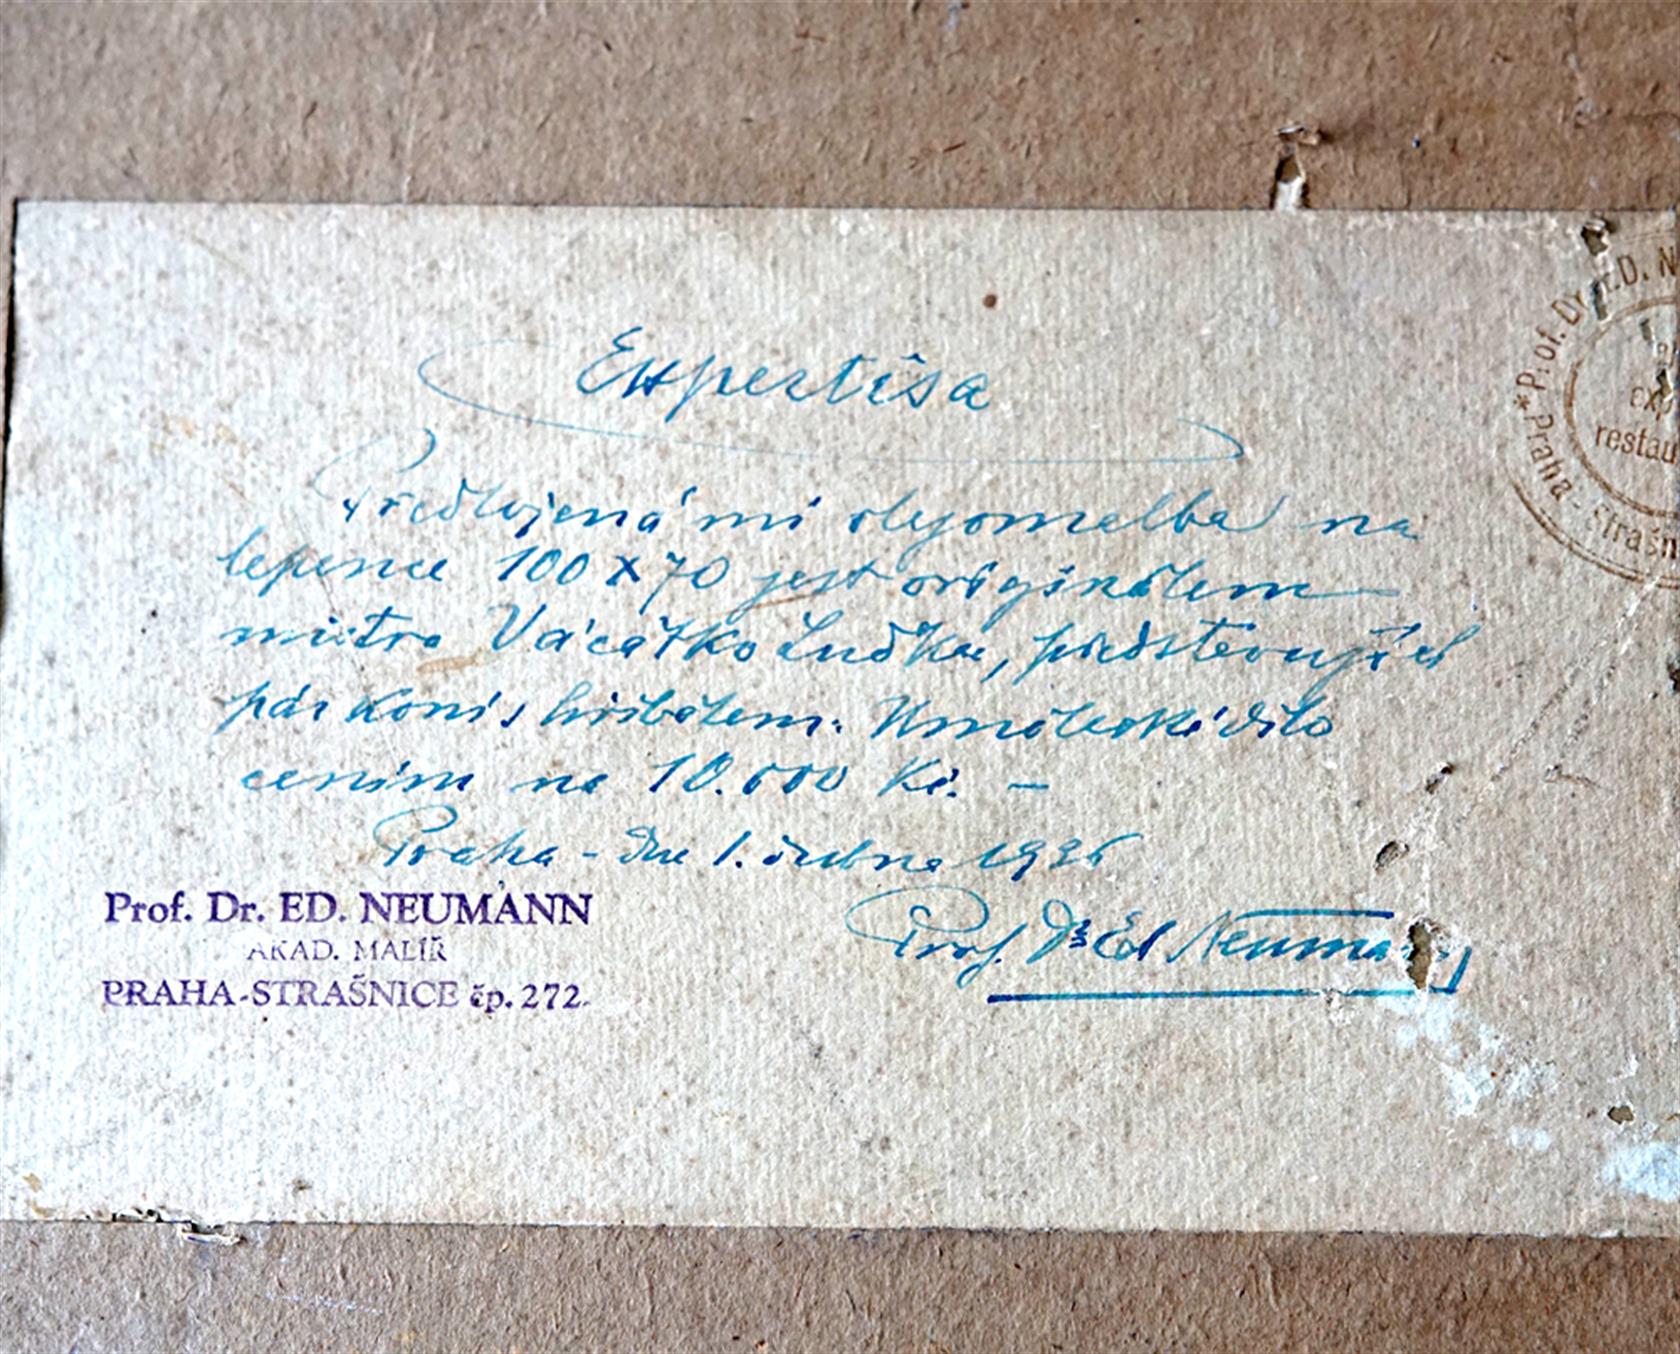 Expertisa
Předložená mi olejomalba na
lepence 100 x 70 jest originálem
mistra Vacátko Luďka, představující
pár koní s hříbětem. Umělecké dílo
cením na 10.000 Kč. –
Praha – dne 1. dubna 1936
Prof. Dr Ed Neumann
Prof. Dr. ED. NEUMANN
AKAD. MALÍŘ
PRAHA-STRAŠNICE čp. 272.
* Prof. Dr. D. N
Praha - Strašn
restau